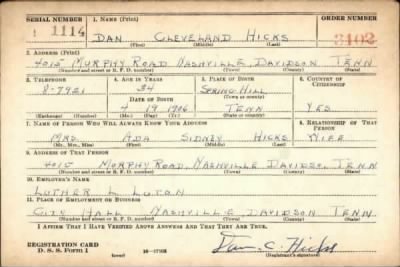 SERIAL NUMBER 1. NAME (Print) ORDER NUMBER
1114 DAN CLEVELAND HICKS 3402
(First) (Middle) (Last)
2. ADDRESS (Print)
4015 MURPHY ROAD NASHVILLE, DAVIDSON TENN
(Number and street or R. F. D. number) (Town) (County) (State)
3. TELEPHONE 4. AGE IN YEARS 5. PLACE OF BIRTH 6. COUNTRY OF CITIZENSHIP
8-7921 34 SPRING HILL
DATE OF BIRTH (Town or county)
4 19 1906 TENN YES
(Exchange) (Number) (Mo.) (Day) (Yr.) (State or country)
7. NAME OF PERSON WHO WILL ALWAYS KNOW YOUR ADDRESS 8. RELATIONSHIP OF THAT PERSON
MRS. ADA SIDNEY HICKS WIFE
(Mr., Mrs., Miss) (First) (Middle) (Last)
9. ADDRESS OF THAT PERSON
4015 MURPHY ROAD, NASHVILLE DAVIDSO, TENN
(Number and street or R. F. D. number) (Town) (County) (State)
10. EMPLOYER'S NAME
LUTHER L LUTON
11. PLACE OF EMPLOYMENT OR BUSINESS
CITY HALL NASHVILLE DAVIDSON TENN
(Number and street or R. F. D. number) (Town) (County) (State)
I AFFIRM THAT I HAVE VERIFIED ABOVE ANSWERS AND THAT THEY ARE TRUE.
REGISTRATION CARD
D. S. S. Form 1 Dan C. Hicks
(Registrant's signature)